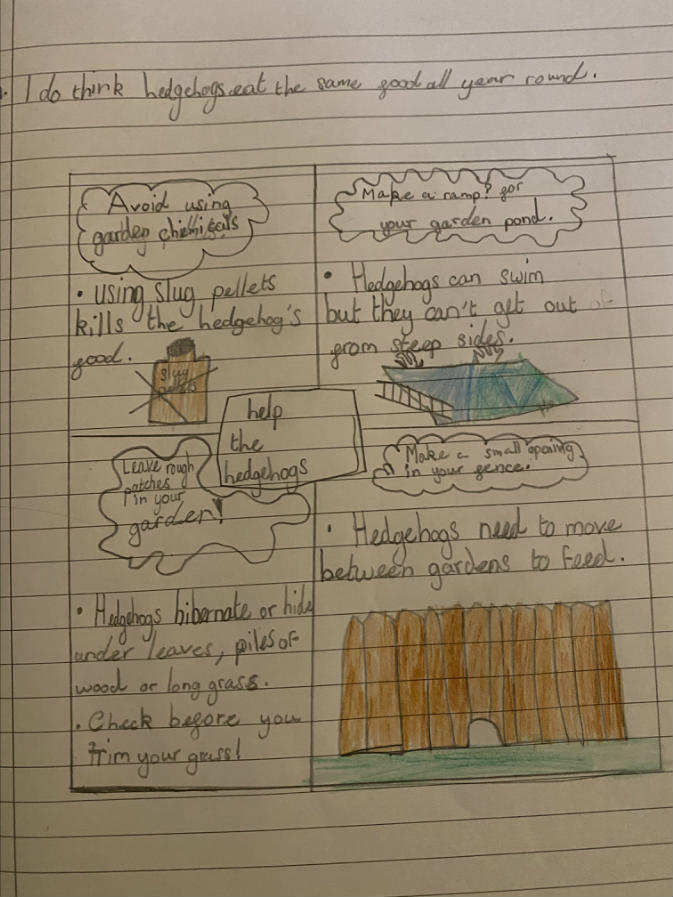 . I do think hedgehogs eat the same food all year round.
Avoid using
garden chimicals
• using slug pellets
kills the hedgehog's
food.
slug
pellets
Make a ramp? for
your garden pond.
• Hedgehogs can swim
but they can't get out of
from steep sides.
help
the
hedgehogs
Leave rough
patches
in your
garden!
• Hedgehogs hibernate or hide
under leaves, piles of
wood or long grass.
• Check before you
trim your grass!
Make a small opening
in your fence.
• Hedgehogs need to move
between gardens to feed.